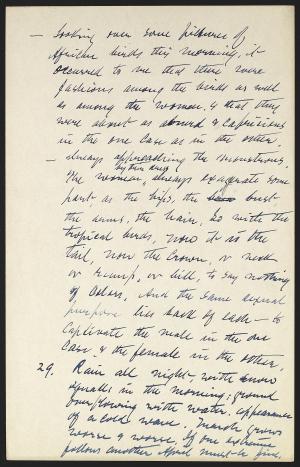 — Looking over some pictures of
African birds this morning, it
occurred to me that there were
fashions among the birds as well
as among the women, & that they
were about as absurd & capricious
in the one case as in the other.
— always approaching the monstrous.
The women, by their dress, always exagerate some
part, as the hips, the bust,
the arms, the hair, so with the
tropical birds, now it is the
tail, now the crown, or neck
or rump, or bill, to say nothing
of colors, And the same sexual
purpose lies back of each — to
captivate the male in the one
case, & the female in the other.
29. Rain all night, with snow
squalls in the morning; ground
overflowing with water. appearance
of a cold wave. March grows
worse & worse. If one extreme
follows another April must be fine.